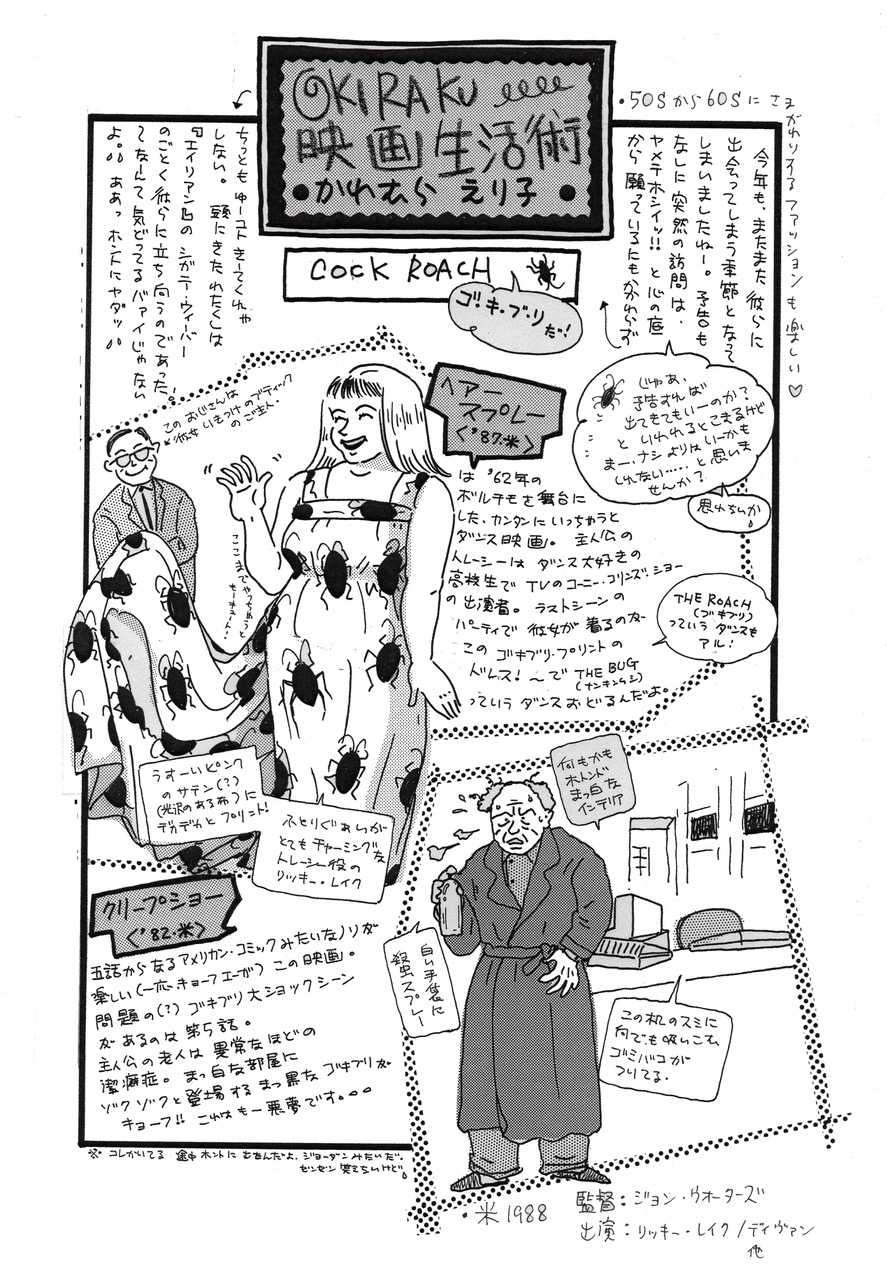 OKIRAKU
映画生活術
●かわむら えり子●
COCK ROACH
ゴ・キ・ブ・リだ!
・50Sから60Sにさまがわりするファッションも楽しい♡
今年も、またまた 彼らに
出会ってしまう季節となって
しまいましたねー。予告も
なしに突然の訪問は、
ヤメテホシイッ!! と心の底
から願っているにもかかわらず
じゃあ、
予告すれば
出てきてもいーのか?
と いわれるとこまるけど
まー、ナシよりはいーかも
しれない……と思いま
せんか?
思わないか
ちっとも ゆーコトきーてくれや
しない。 頭にきたわたくしは
『エイリアン2』の シガニー・ウィーバー
のごとく彼らに立ち向うのであった!
てなーんて 気どってるバァイじゃない
よ。。ああっ ホントにヤダッ!!
ヘアー
スプレー
<'87.米>
は '62年の
ボルチモを舞台に
した、カンタンにいっちゃうと
ダンス映画。 主人公の
トレーシーは ダンス大好きの
高校生で TVのコーニー・コリンズ・ショー
の出演者。 ラストシーンの
パーティで 彼女が 着るのが
このゴキブリ・プリントの
ドレス! 〜で THE BUG
(ナンキンムシ)
っていう ダンスおどるんだよ。
THE ROACH
(ゴキブリ)
っていう ダンスも
アル!
このおじさんは
彼女いきつけのブティック
のご主人・
ここまでやっちゃうと
もーキュート!
うすーいピンク
のサテン(?)
(光沢のあるね)に
デカデカとプリント!
ふとりぐあいが
とてもチャーミングな
トレーシー役の
リッキー・レイク
クリープショー
<'82.米>
五話からなるアメリカン・コミックみたいなノリが
楽しい(一応キョーフエーが)この映画。
問題の(?)ゴキブリ大ショックシーン
があるのは第5話。
主人公の老人は 異常なほどの
潔癖症。 まっ白な部屋に
ゾクゾクと登場する まっ黒なゴキブリが
キョーフ!! これはもー悪夢です。。。
何もかも
ホトンド
まっ白な
インテリア
白い手袋に
殺虫スプレー
この机のスミに
何でも吸いこむ
ゴミバコが
ついてる.
※コレかいてる 途中ホントに出たんだよ、ジョーダンみたいだ。
ゼンゼン笑えないけど。
・米1988
監督：ジョン・ウオーターズ
出演：リッキー・レイク/ディヴァン
他